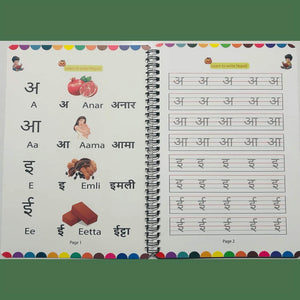 Learn to write Nepali
अ
A अ Anar अनार
आ
Aa आ Aama आमा
इ
E इ Emli इमली
ई
Ee ई Eetta ईट्टा
Page 1
Learn to write Nepali
अ अ अ अ अ
अ अ अ अ अ
आ आ आ आ आ
आ आ आ आ आ
इ इ इ इ इ
इ इ इ इ इ
ई ई ई ई ई
ई ई ई ई ई
Page 2